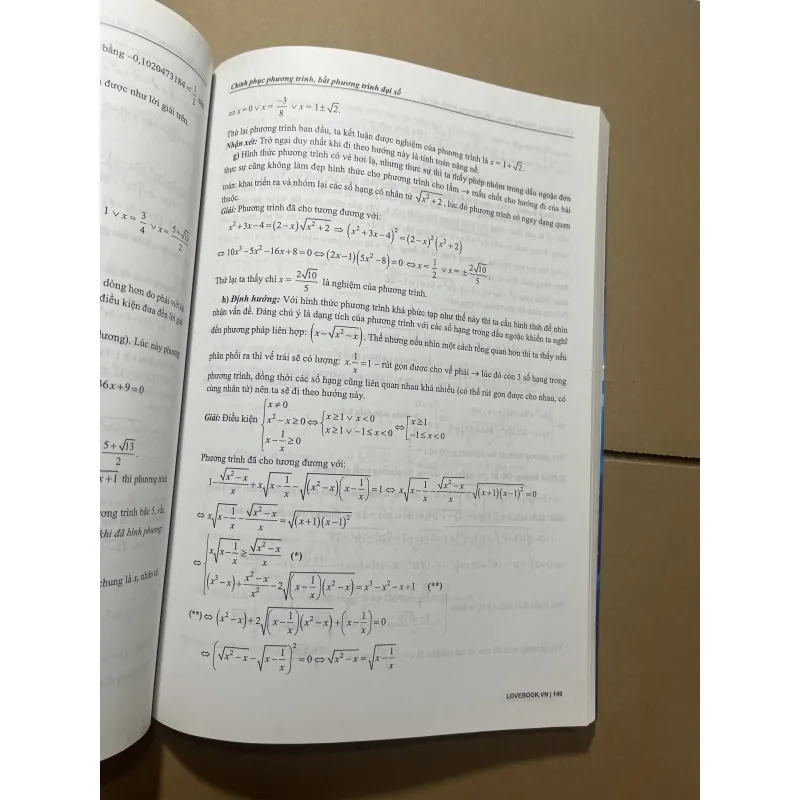 bằng −0,1020473184 < 1/2
được như lời giải trên.
1 ∨ x = 3/4 ∨ x = (5+√13)/2
dòng hơn do phải viết lại
điều kiện đưa đến lời giải
Lúc này phương
6x + 9 = 0
(5+√13)/2
x+1 thì phương trình
trình bậc 5, vẫn
khi đã bình phương
chung là x, nhân cả
Chinh phục phương trình, bất phương trình đại số
⇔ x = 0 ∨ x = −3/8 ∨ x = 1 ± √2.
Thử lại phương trình ban đầu, ta kết luận được nghiệm của phương trình là x = 1 + √2.
Nhận xét: Trở ngại duy nhất khi đi theo hướng này là tính toán nặng nề.
g) Hình thức phương trình có vẻ hơi lạ, nhưng thực sự thì ta thấy phép nhóm trong dấu ngoặc đơn
thực sự cũng không làm đẹp hình thức cho phương trình cho lắm → mấu chốt cho hướng đi của bài
toán: khai triển ra và nhóm lại các số hạng có nhân tử √(x²+2), lúc đó phương trình có ngay dạng quen
thuộc.
Giải: Phương trình đã cho tương đương với:
x² + 3x − 4 = (2 − x)√(x² + 2) ⇒ (x² + 3x − 4)² = (2 − x)²(x² + 2)
⇔ 10x³ − 5x² − 16x + 8 = 0 ⇔ (2x − 1)(5x² − 8) = 0 ⇔ x = 1/2 ∨ x = ± 2√10/5.
Thử lại ta thấy chỉ x = 2√10/5 là nghiệm của phương trình.
h) Định hướng: Với hình thức phương trình khá phức tạp như thế này thì ta cần bình tĩnh để nhìn
nhận vấn đề. Đáng chú ý là dạng tích của phương trình với các số hạng trong dấu ngoặc khiến ta nghĩ
đến phương pháp liên hợp: (x − √(x² − x)). Thế nhưng nếu nhìn một cách tổng quan hơn thì ta thấy nếu
phân phối ra thì vế trái sẽ có lượng: x.1/x = 1 – rút gọn được cho vế phải → lúc đó còn 3 số hạng trong
phương trình, đồng thời các số hạng cũng liên quan nhau khá nhiều (có thể rút gọn được cho nhau, có
cùng nhân tử) nên ta sẽ đi theo hướng này.
Giải: Điều kiện { x ≠ 0; x² − x ≥ 0; x − 1/x ≥ 0 ⇔ { x ≥ 1 ∨ x < 0; x ≥ 1 ∨ −1 ≤ x < 0 ⇔ [ x ≥ 1; −1 ≤ x < 0
Phương trình đã cho tương đương với:
1 − √(x² − x)/x + x√(x − 1/x) − √((x² − x)(x − 1/x)) = 1 ⇔ x√(x − 1/x) − √(x² − x)/x − √((x+1)(x−1)²) = 0
⇔ x√(x − 1/x) − √(x² − x)/x = √((x+1)(x−1)²)
⇔ { x√(x − 1/x) ≥ √(x² − x)/x (*)
(x³ − x) + (x² − x)/x² − 2√((x − 1/x)(x² − x)) = x³ − x² − x + 1 (**)
(**) ⇔ (x² − x) + 2√((x − 1/x)(x² − x)) + (x − 1/x) = 0
⇔ (√(x² − x) − √(x − 1/x))² = 0 ⇔ √(x² − x) = √(x − 1/x)
LOVEBOOK.VN | 149